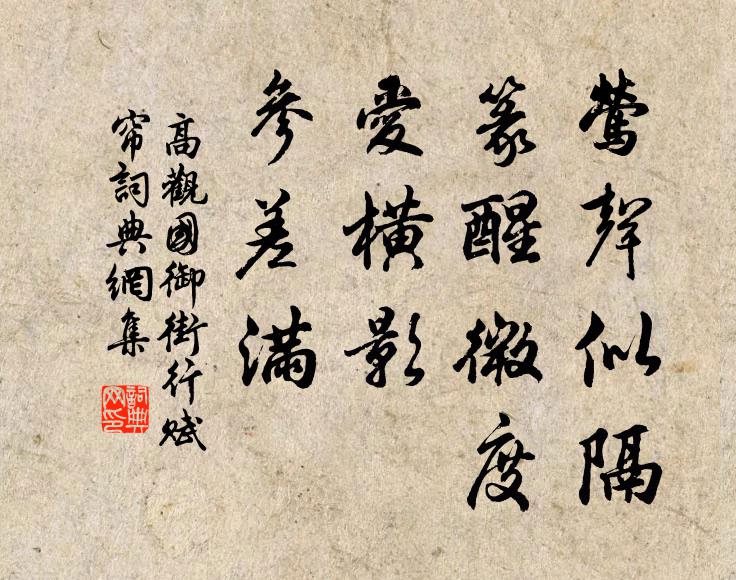 鶯聲似隔
篆醒微度
愛橫影
參差滿
高觀國御街行賦
帘詞典網集
詞典網印